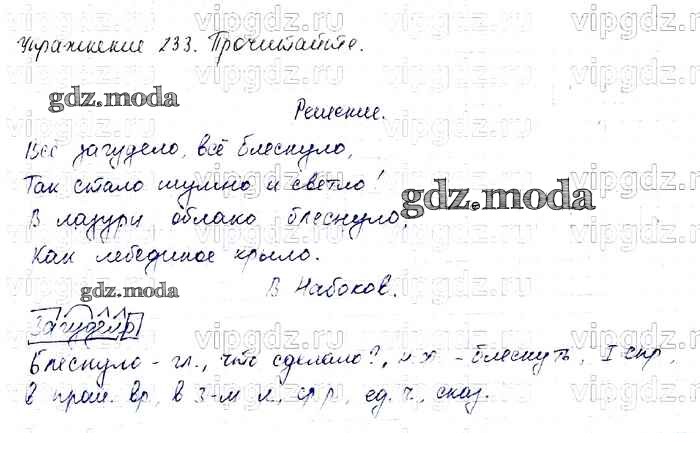 Упражнение 233. Прочитайте.
gdz.moda
Решение.
Всё загудело, всё блеснуло,
Так стало шумно и светло!
gdz.moda
В лазури облако блеснуло,
Как лебединое крыло.
gdz.moda
В Набоков.
Загудело
Блеснуло - гл., что сделало?, н.ф. - блеснуть, I спр,
в прош. вр, в 3-м л., ср р, ед. ч., сказ.